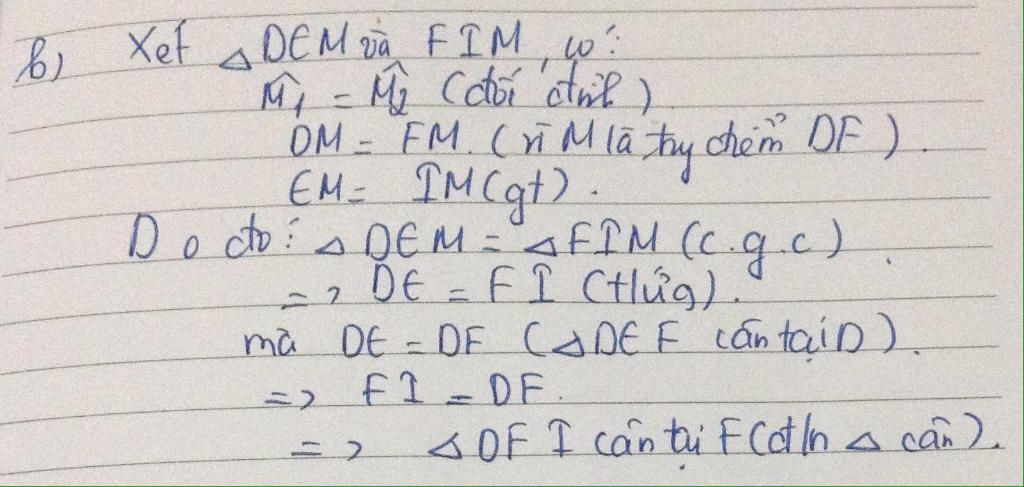 b) Xét △DEM và FIM, có:
M̂1 = M̂2 (đối đỉnh)
DM = FM. (vì M là tr điểm DF).
EM = IM (gt).
Do đó: △DEM = △FIM (c.g.c)
=> DE = FI (t/ứg).
mà DE = DF (△DEF cân tại D).
=> FI = DF.
=> △DFI cân tại F (đ/n △ cân).